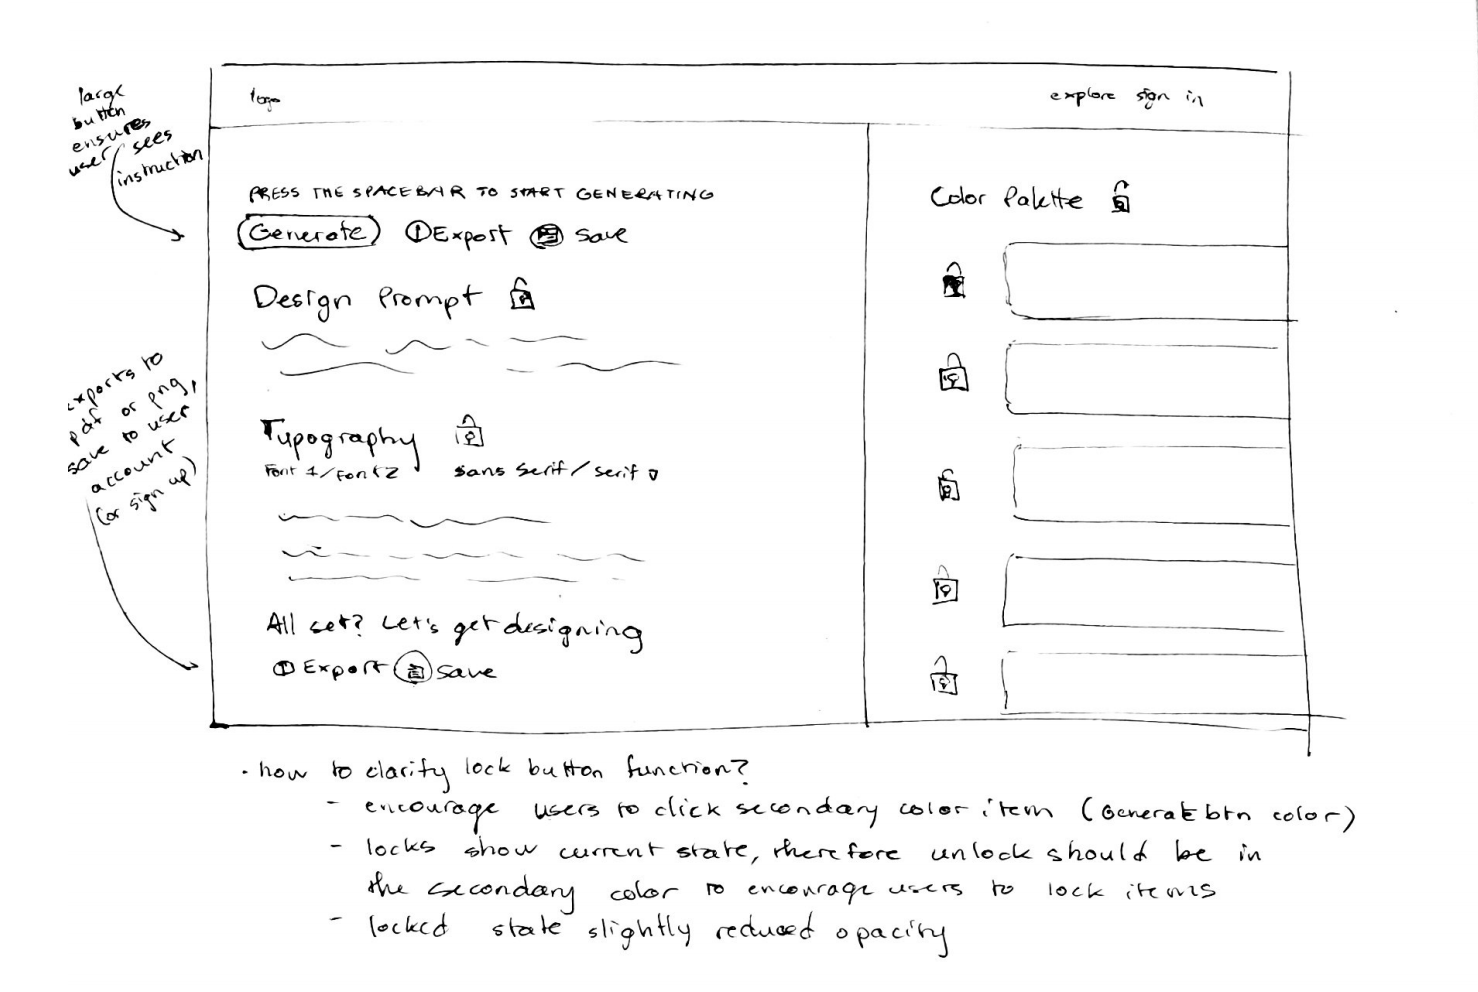 large
button
ensures
user sees
instruction
logo
explore sign in
PRESS THE SPACEBAR TO START GENERATING
Generate Export save
Design Prompt
Typography
Font 1/Font 2 sans serif/serif
All set? Let's get designing
Export save
Color Palette
exports to
pdf or png,
save to user
account
(or sign up)
· how to clarify lock button function?
- encourage users to click secondary color item (Generate btn color)
- locks show current state, therefore unlock should be in
the secondary color to encourage users to lock items
- locked state slightly reduced opacity